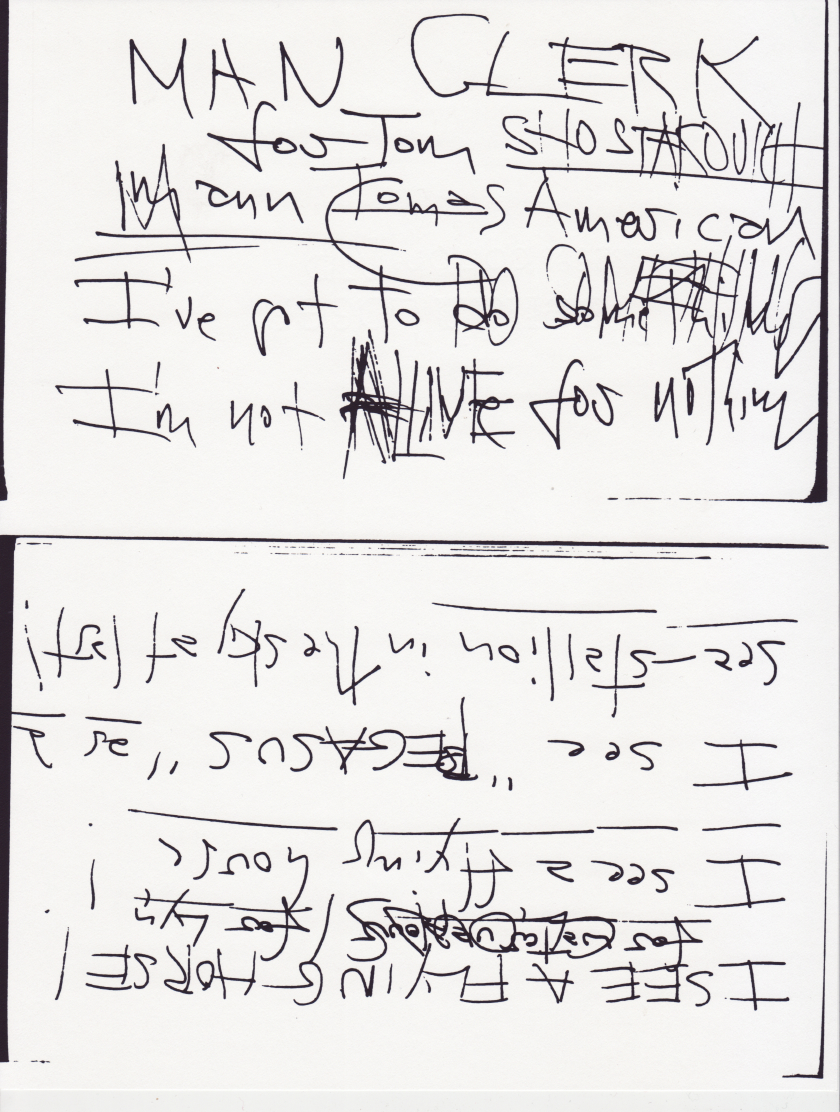 MAN CLERK
for Tom SHOSTAKOVICH
Mann Tomas American
I've got to Do Something
I'm not ALIVE for nothing
I SEE A FLYING HORSE!
for / for
I see a flying horse!
I see "PEGASUS" as a
see-stallion in the sky at last!